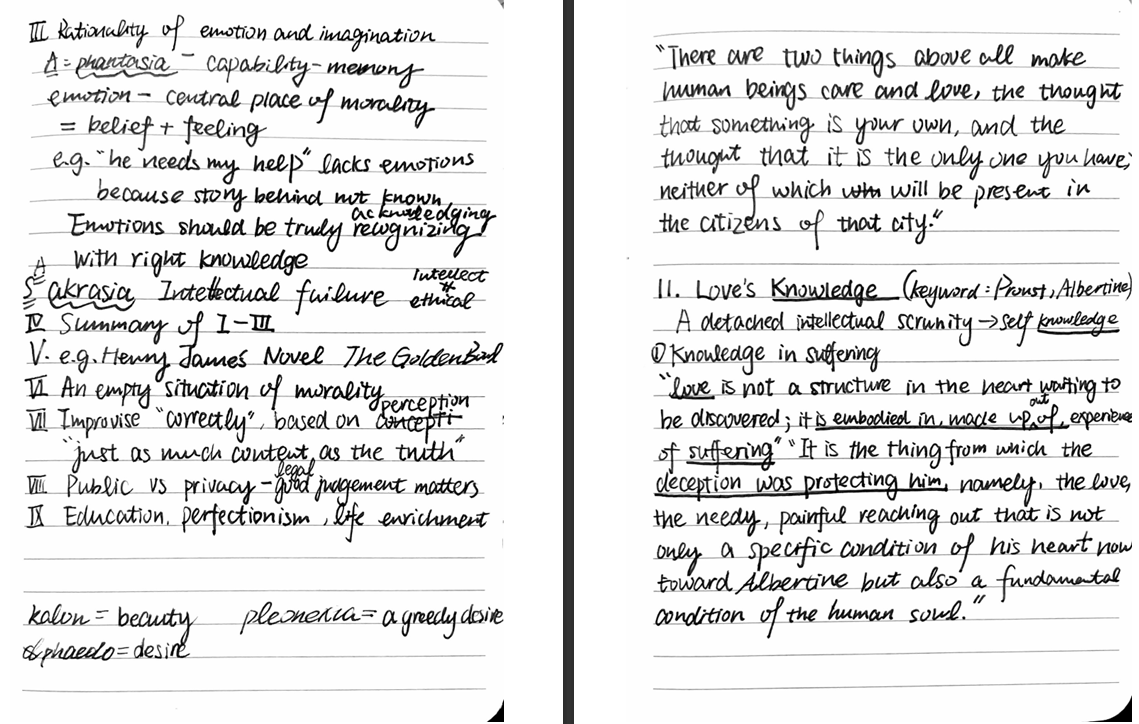 III Rationality of emotion and imagination
A = phantasia - capability - memory
emotion - central place of morality
= belief + feeling
e.g. "he needs my help" lacks emotions
because story behind not known
acknowledging
Emotions should be truly recognizing
with right knowledge
A
S akrasia Intellectual failure
Intellect
≠
ethical
IV Summary of I-III
V. e.g. Henry James Novel The Golden Bowl
VI An empty situation of morality
perception
VII Improvise "correctly", based on concept
"just as much content, as the truth"
legal
VIII Public vs privacy - good judgement matters
IX Education, perfectionism, life enrichment
kalon = beauty pleonexia = a greedy desire
phaedo = desire
"There are two things above all make
human beings care and love, the thought
that something is your own, and the
thought that it is the only one you have,
neither of which will be present in
the citizens of that city."
II. Love's Knowledge (keyword: Proust, Albertine)
A detached intellectual scrunity → self knowledge
① Knowledge in suffering
"love is not a structure in the heart waiting to
be discovered; it is embodied in, made up out of, experience
of suffering" "It is the thing from which the
deception was protecting him, namely, the love,
the needy, painful reaching out that is not
only a specific condition of his heart now
toward Albertine but also a fundamental
condition of the human soul."